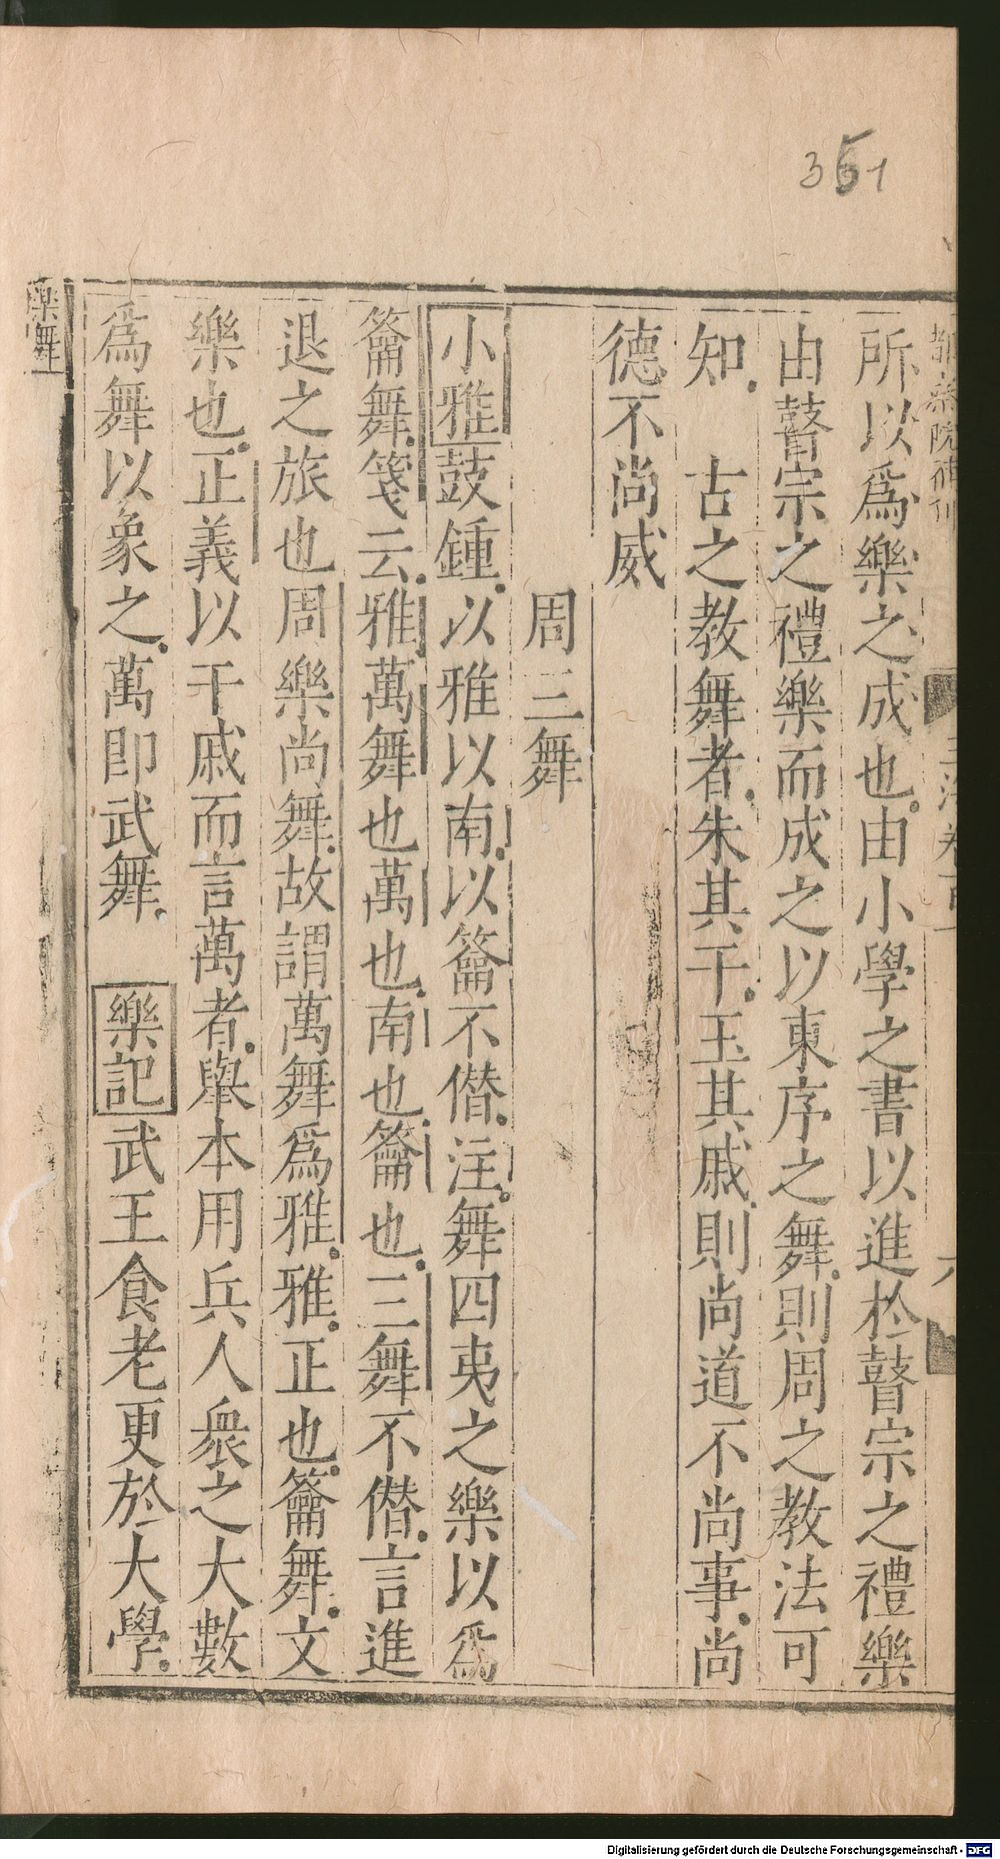 351
所以爲樂之成也由小學之書以進於瞽宗之禮樂
由瞽宗之禮樂而成之以東序之舞則周之教法可
知　古之教舞者朱其干玉其戚則尚道不尚事尚
德不尚威
周三舞
小雅鼓鍾以雅以南以籥不僭注舞四夷之樂以爲
籥舞箋云雅萬舞也萬也南也籥也三舞不僭言進
退之旅也周樂尚舞故謂萬舞爲雅雅正也籥舞文
樂也正義以干戚而言萬者舉本用兵人衆之大數
爲舞以象之萬即武舞　樂記武王食老更於大學
樂舞
Digitalisierung gefördert durch die Deutsche Forschungsgemeinschaft - DFG